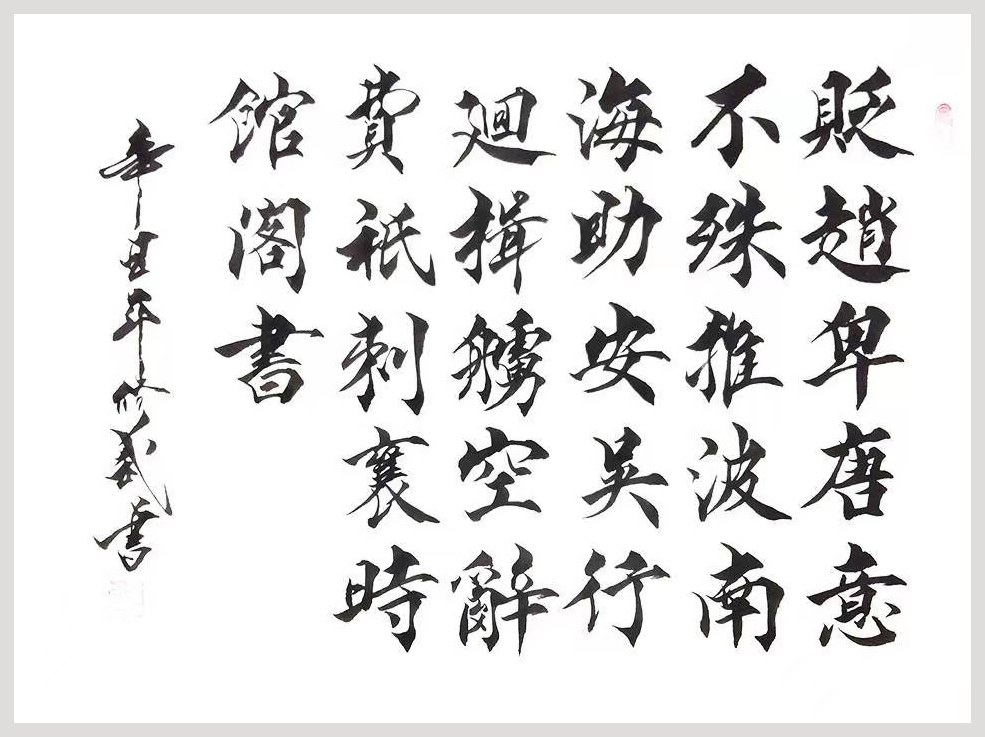 貶趙卑唐意
不殊推波南
海助安吳行
廻揖艣空辭
費祇刺襄時
館閣書
辛丑年修武書